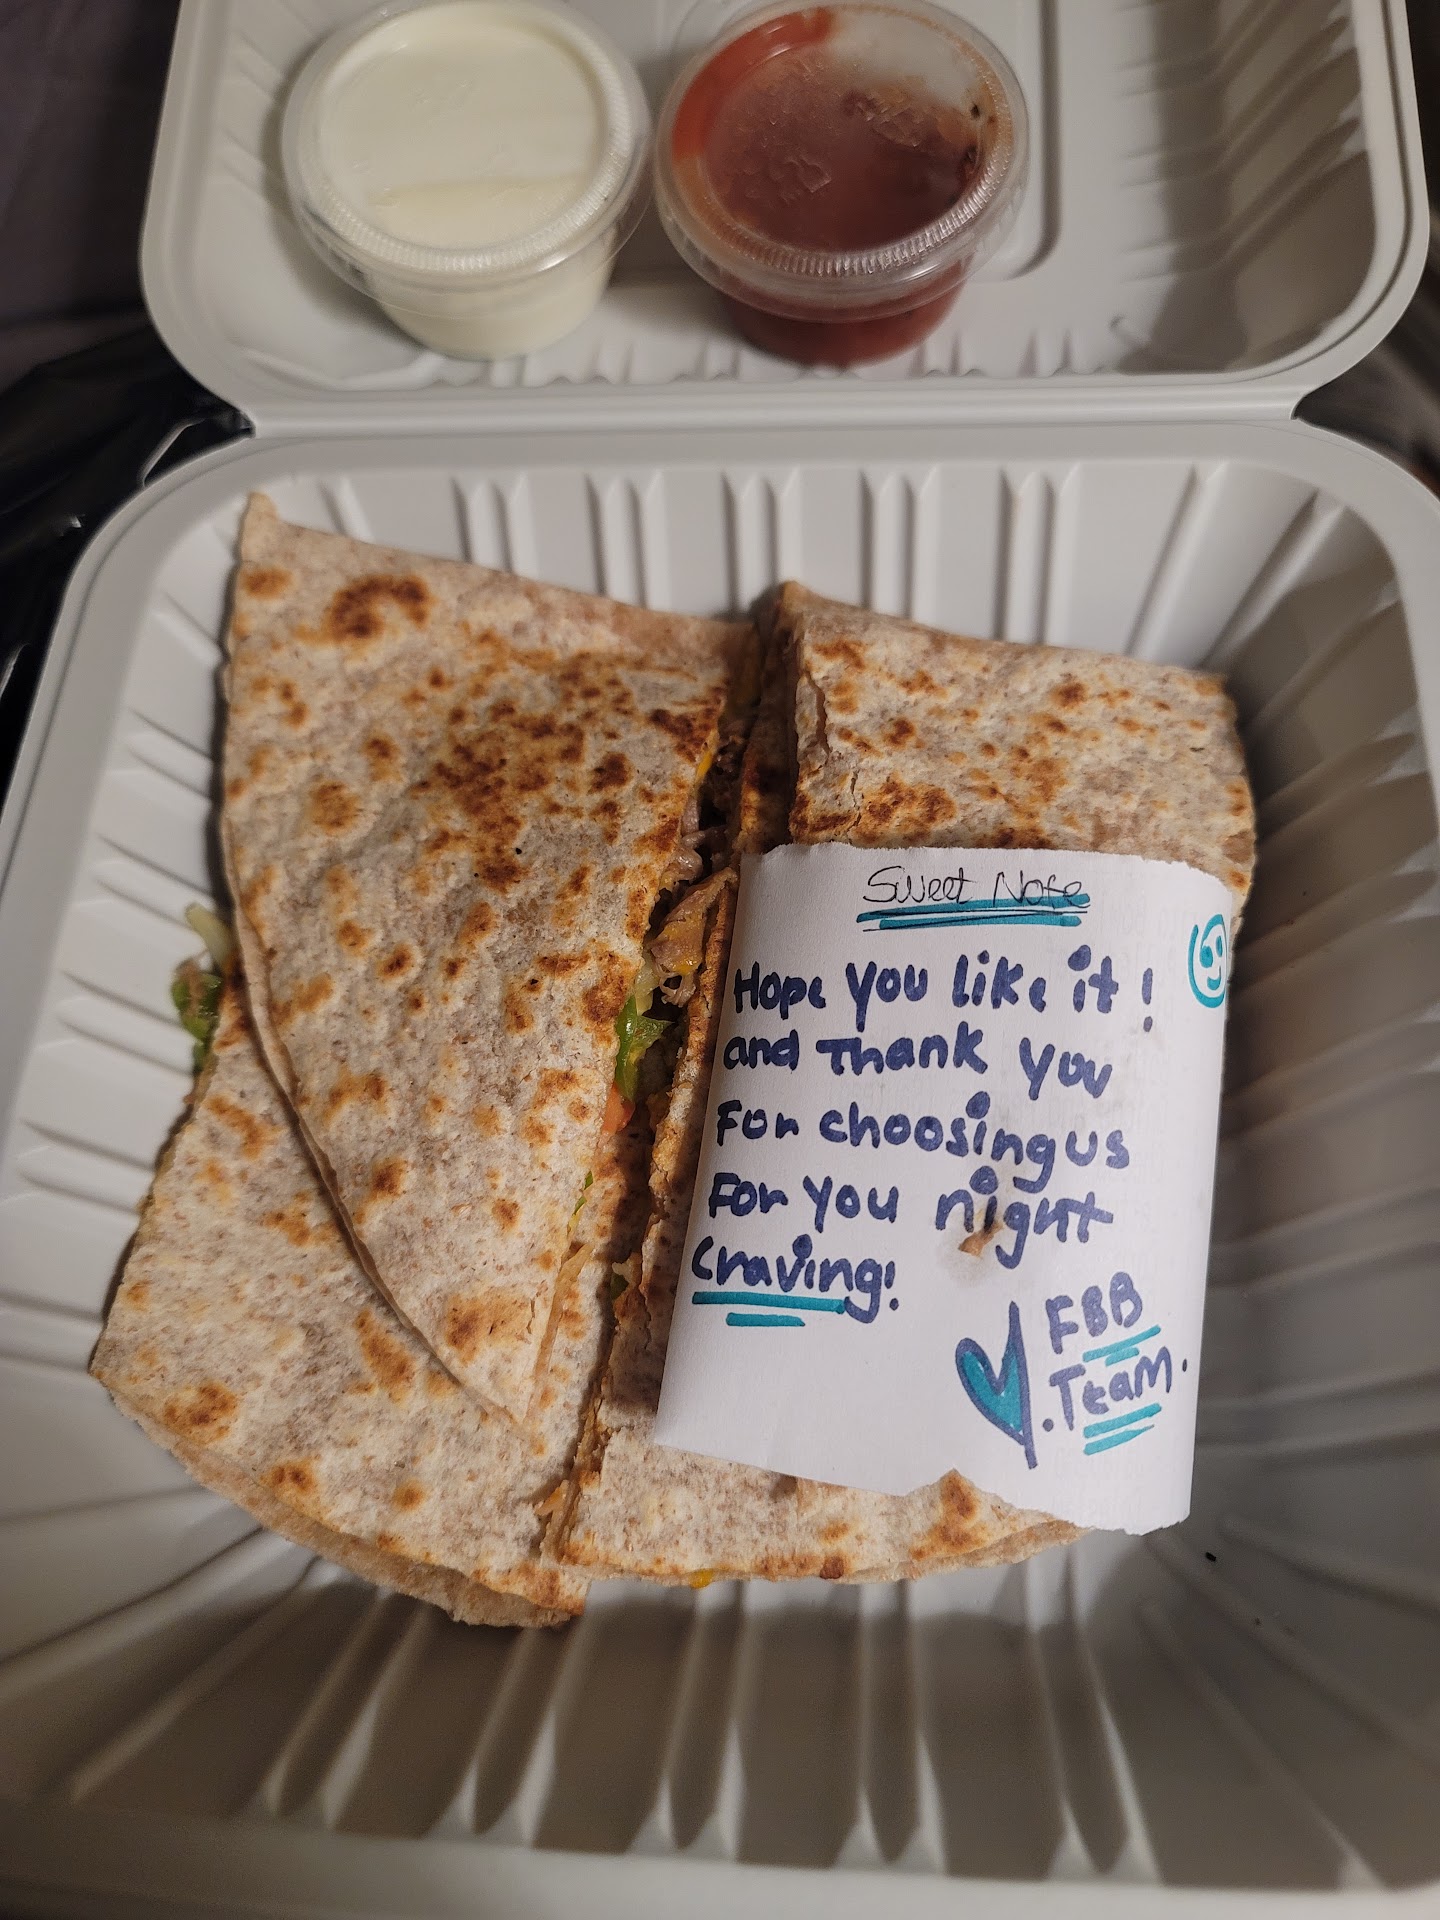 Sweet Note
Hope you like it!
and Thank you
For choosing us
For you night
Craving!
FBB
.Team.